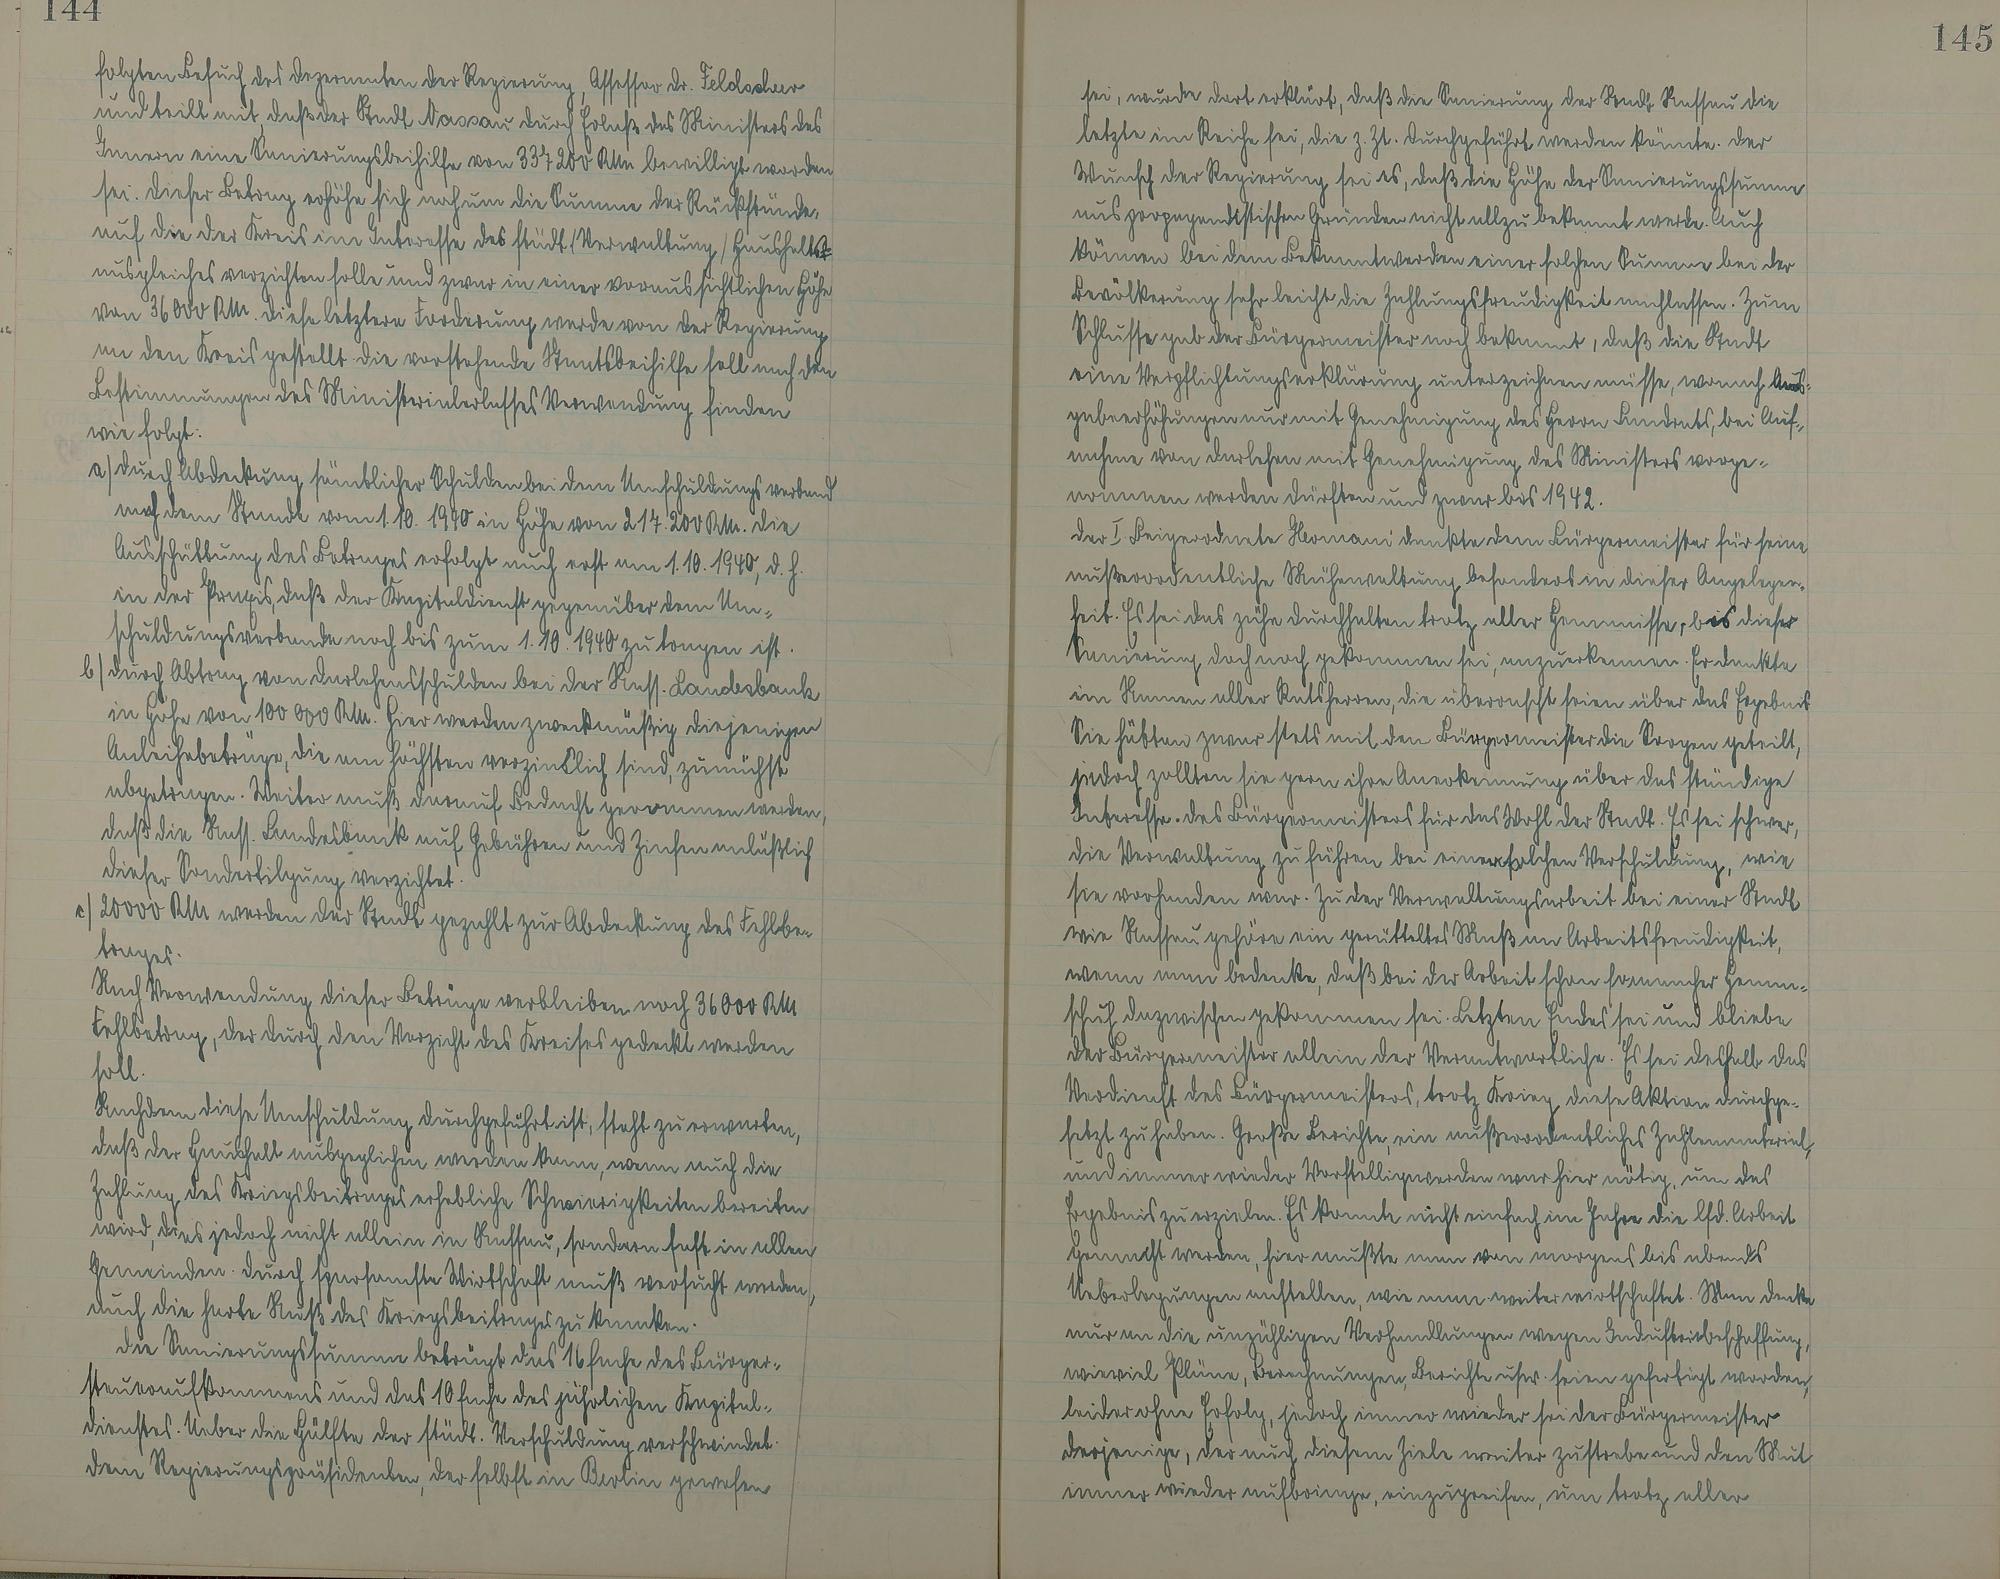 144
folgten Besuch des Dezernenten der Regierung, Assessor Dr. Feldscher
und teilt mit, daß der Stadt Nassau durch Erlaß des Ministers des
Innern eine Sanierungsbeihilfe von 337 200 RM bewilligt worden
sei. Dieser Betrag erhöhe sich noch um die Summe der Rückstände,
auf die der Kreis im Interesse des städt. (Verwaltung) Haushalts-
ausgleiches verzichten solle und zwar in einer voraussichtlichen Höhe
von 36 000 RM. Diese letztere Forderung werde von der Regierung
an den Kreis gestellt. Die vorstehende Staatsbeihilfe soll nach den
Bestimmungen des Ministerialerlasses Verwendung finden
wie folgt:
a) Durch Abdeckung sämtlicher Schulden bei dem Umschuldungsverband
nach dem Stande vom 1.10. 1940 in Höhe von 217.200 RM. Die
Ausschüttung des Betrages erfolgt auch erst am 1.10.1940, d. h.
in der Praxis, daß der Kapitaldienst gegenüber dem Um-
schuldungsverbande noch bis zum 1.10.1940 zu tragen ist.
b) Durch Abtrag von Darlehensschulden bei der Nass. Landesbank
in Höhe von 100 000 RM. Hier werden zweckmäßig diejenigen
Anleihebeträge, die am höchsten verzinslich sind, zunächst
abgetragen. Weiter muß darauf Bedacht genommen werden,
daß die Nass. Landesbank auf Gebühren und Zinsen anläßlich
dieser Sondertilgung verzichtet.
c) 20000 RM werden der Stadt gezahlt zur Abdeckung des Fehlbe-
trages.
Nach Verwendung dieser Beträge verbleiben noch 36 000 RM
Fehlbetrag, der durch den Verzicht des Kreises gedeckt werden
soll.
Nachdem diese Umschuldung durchgeführt ist, steht zu erwarten,
daß der Haushalt ausgeglichen werden kann, wenn auch die
Zahlung des Kriegsbeitrages erhebliche Schwierigkeiten bereiten
wird, dies jedoch nicht allein in Nassau, sondern fast in allen
Gemeinden. Durch sparsamste Wirtschaft muß versucht werden,
auch die harte Nuß des Kriegsbeitrages zu knacken.
Die Sanierungssumme beträgt das 16 fache des Bürger-
steueraufkommens und das 10 fache des jährlichen Kapital-
dienstes. Ueber die Hälfte der städt. Verschuldung verschwindet.
Dem Regierungspräsidenten, der selbst in Berlin gewesen
145
sei, wurde dort erklärt, daß die Sanierung der Stadt Nassau die
letzte im Reiche sei, die z. Zt. durchgeführt werden könnte. Der
Wunsch der Regierung sei es, daß die Höhe der Sanierungssumme
aus propagandistischen Gründen nicht allzu bekannt werde. Auch
können bei dem Bekanntwerden einer solchen Summe bei der
Bevölkerung sehr leicht die Zahlungsfreudigkeit nachlassen. Zum
Schlusse gab der Bürgermeister noch bekannt, daß die Stadt
eine Verpflichtungserklärung unterzeichnen müsse, wonach Aus-
gabeerhöhungen nur mit Genehmigung des Herrn Landrats, bei Auf-
nahme von Darlehen mit Genehmigung des Ministers vorge-
nommen werden dürften und zwar bis 1942.
Der I. Beigeordnete Hermani dankte dem Bürgermeister für seine
außerordentliche Mühewaltung besonders in dieser Angelegen-
heit. Es sei das zähe Durchhalten trotz aller Hemmnisse, bis dieser
Sanierung doch noch gekommen sei, anzuerkennen. Er dankte
im Namen aller Ratsherren, die überrascht seien über das Ergebnis
Sie hätten zwar stets mit dem Bürgermeister die Sorgen geteilt,
jedoch zollten sie gern ihre Anerkennung über das ständige
Interesse des Bürgermeisters für das Wohl der Stadt. Es sei schwer,
die Verwaltung zu führen bei einer solchen Verschuldung, wie
sie vorhanden war. Zu der Verwaltungsarbeit bei einer Stadt
wie Nassau gehöre ein gerütteltes Maß an Arbeitsfreudigkeit,
wenn man bedenke, daß bei der Arbeit schon so mancher Hemm-
schuh dazwischen gekommen sei. Letzten Endes sei und bliebe
der Bürgermeister allein der Verantwortliche. Es sei deshalb das
Verdienst des Bürgermeisters, trotz Krieg diese Aktion durchge-
setzt zu haben. Große Berichte, ein außerordentliches Zahlenmaterial,
und immer wieder Vorstelligwerden war hier nötig, um das
Ergebnis zu erzielen. Es konnte nicht einfach im Jahre die lfd. Arbeit
gemacht werden, hier mußte man von morgens bis abends
Ueberlegungen anstellen, wie man weiter wirtschaftet. Man denke
nur an die unzähligen Verhandlungen wegen Industriebeschaffung,
wieviel Pläne, Berechnungen, Berichte usw. seien gefertigt worden,
leider ohne Erfolg, jedoch immer wieder sei der Bürgermeister
derjenige, der nach diesem Ziele weiter zustrebe und den Mut
immer wieder aufbringe, einzugreifen, um trotz aller